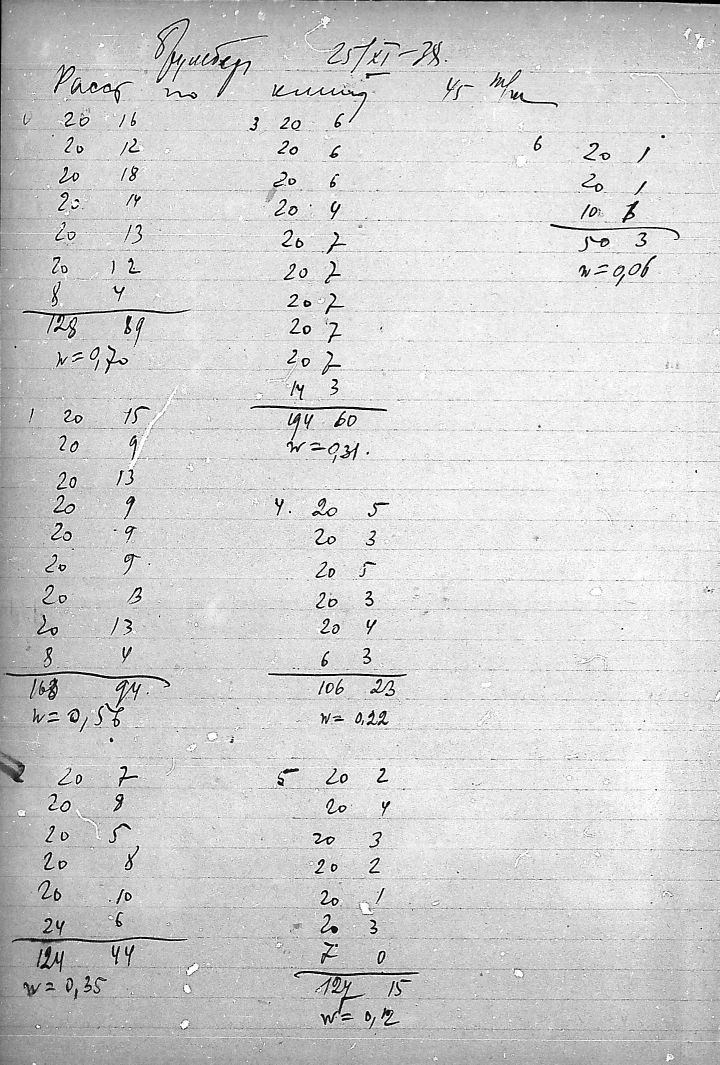 25/XI-38.
Расст по 45 m/m
0 20 16
20 12
20 18
20 14
20 13
20 12
8 4
128 89
w=0,70
1 20 15
20 9
20 13
20 9
20 9
20 9
20 13
20 13
8 4
168 94.
w=0,56
2 20 7
20 8
20 5
20 8
20 10
24 6
124 44
w=0,35
3 20 6
20 6
20 6
20 4
20 7
20 7
20 7
20 7
20 7
14 3
194 60
w=0,31.
4. 20 5
20 3
20 5
20 3
20 4
6 3
106 23
w=0,22
5 20 2
20 4
20 3
20 2
20 1
20 3
7 0
127 15
w=0,12
6 20 1
20 1
10 1
50 3
w=0,06